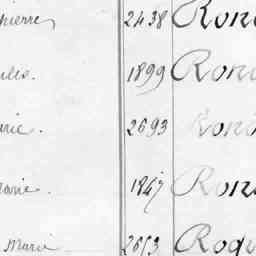 pierre 2438 Rond
ules. 1899 Rond
arie. 2693 Rond
Marie 1847 Rond
Marie 2653 Roqu